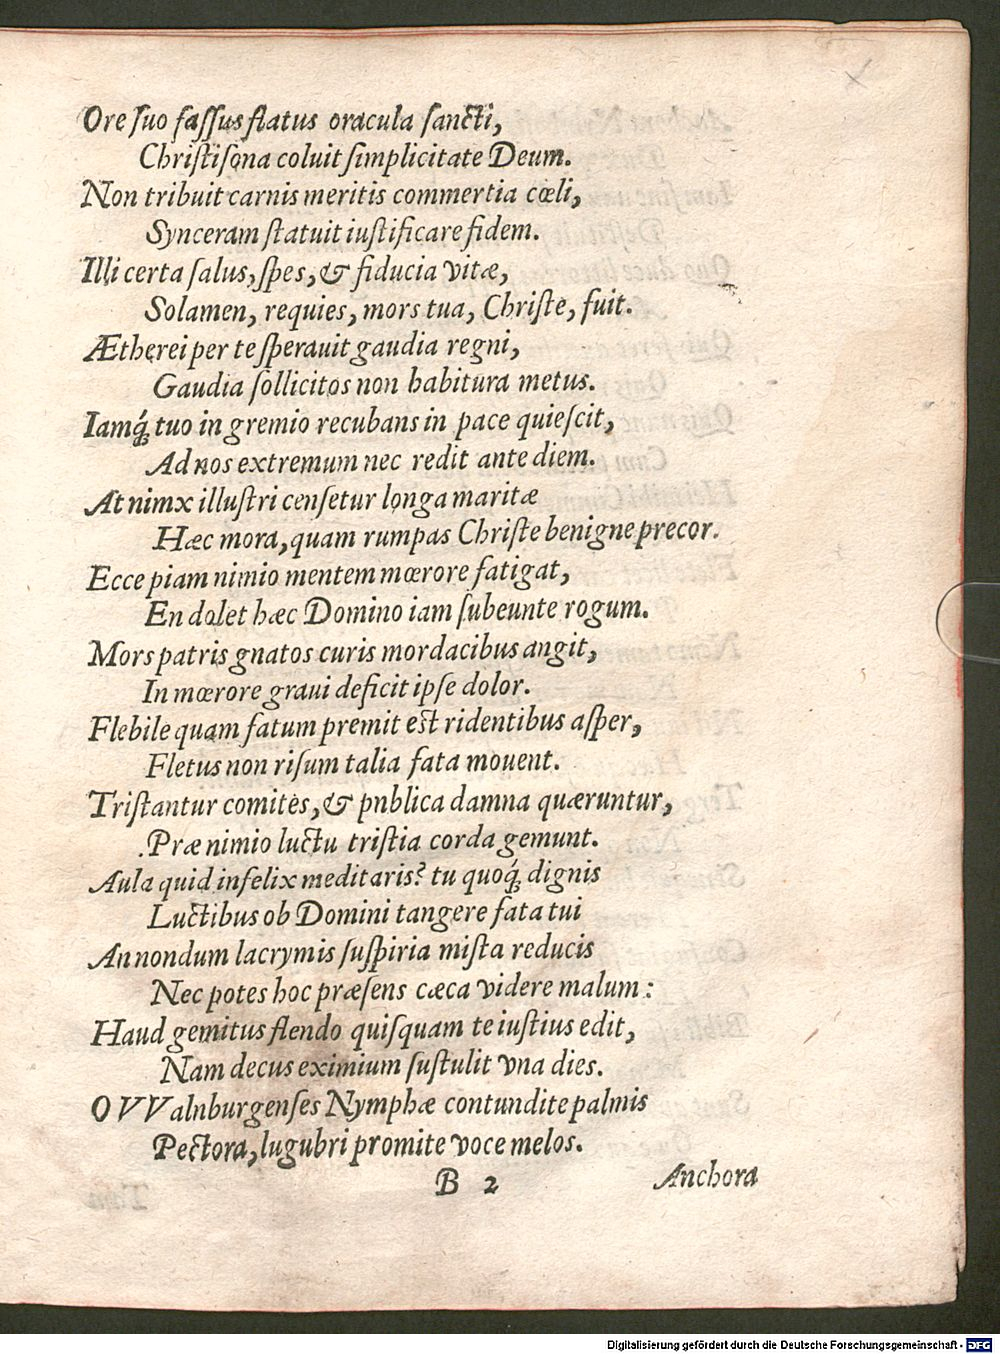 Ore ſuo faſſus flatus oracula ſancti,
Chriſtiſona coluit ſimplicitate Deum.
Non tribuit carnis meritis commertia cœli,
Synceram ſtatuit iuſtificare fidem.
Illi certa ſalus, ſpes, & fiducia vitæ,
Solamen, requies, mors tua, Chriſte, fuit.
Ætherei per te ſperauit gaudia regni,
Gaudia ſollicitos non habitura metus.
Iamq́; tuo in gremio recubans in pace quieſcit,
Ad nos extremum nec redit ante diem.
At nimx illuſtri cenſetur longa maritæ
Hæc mora, quam rumpas Chriſte benigne precor.
Ecce piam nimio mentem mœrore fatigat,
En dolet hæc Domino iam ſubeunte rogum.
Mors patris gnatos curis mordacibus angit,
In mœrore graui deficit ipſe dolor.
Flebile quam fatum premit eſt ridentibus aſper,
Fletus non riſum talia fata mouent.
Triſtantur comites, & pnblica damna quæruntur,
Præ nimio luctu triſtia corda gemunt.
Aula quid infelix meditaris? tu quoq́; dignis
Luctibus ob Domini tangere fata tui
An nondum lacrymis ſuſpiria miſta reducis
Nec potes hoc præſens cæca videre malum:
Haud gemitus flendo quiſquam te iuſtius edit,
Nam decus eximium ſuſtulit vna dies.
O VValnburgenſes Nymphæ contundite palmis
Pectora, lugubri promite voce melos.
B 2 Anchora
Digitalisierung gefördert durch die Deutsche Forschungsgemeinschaft - DFG